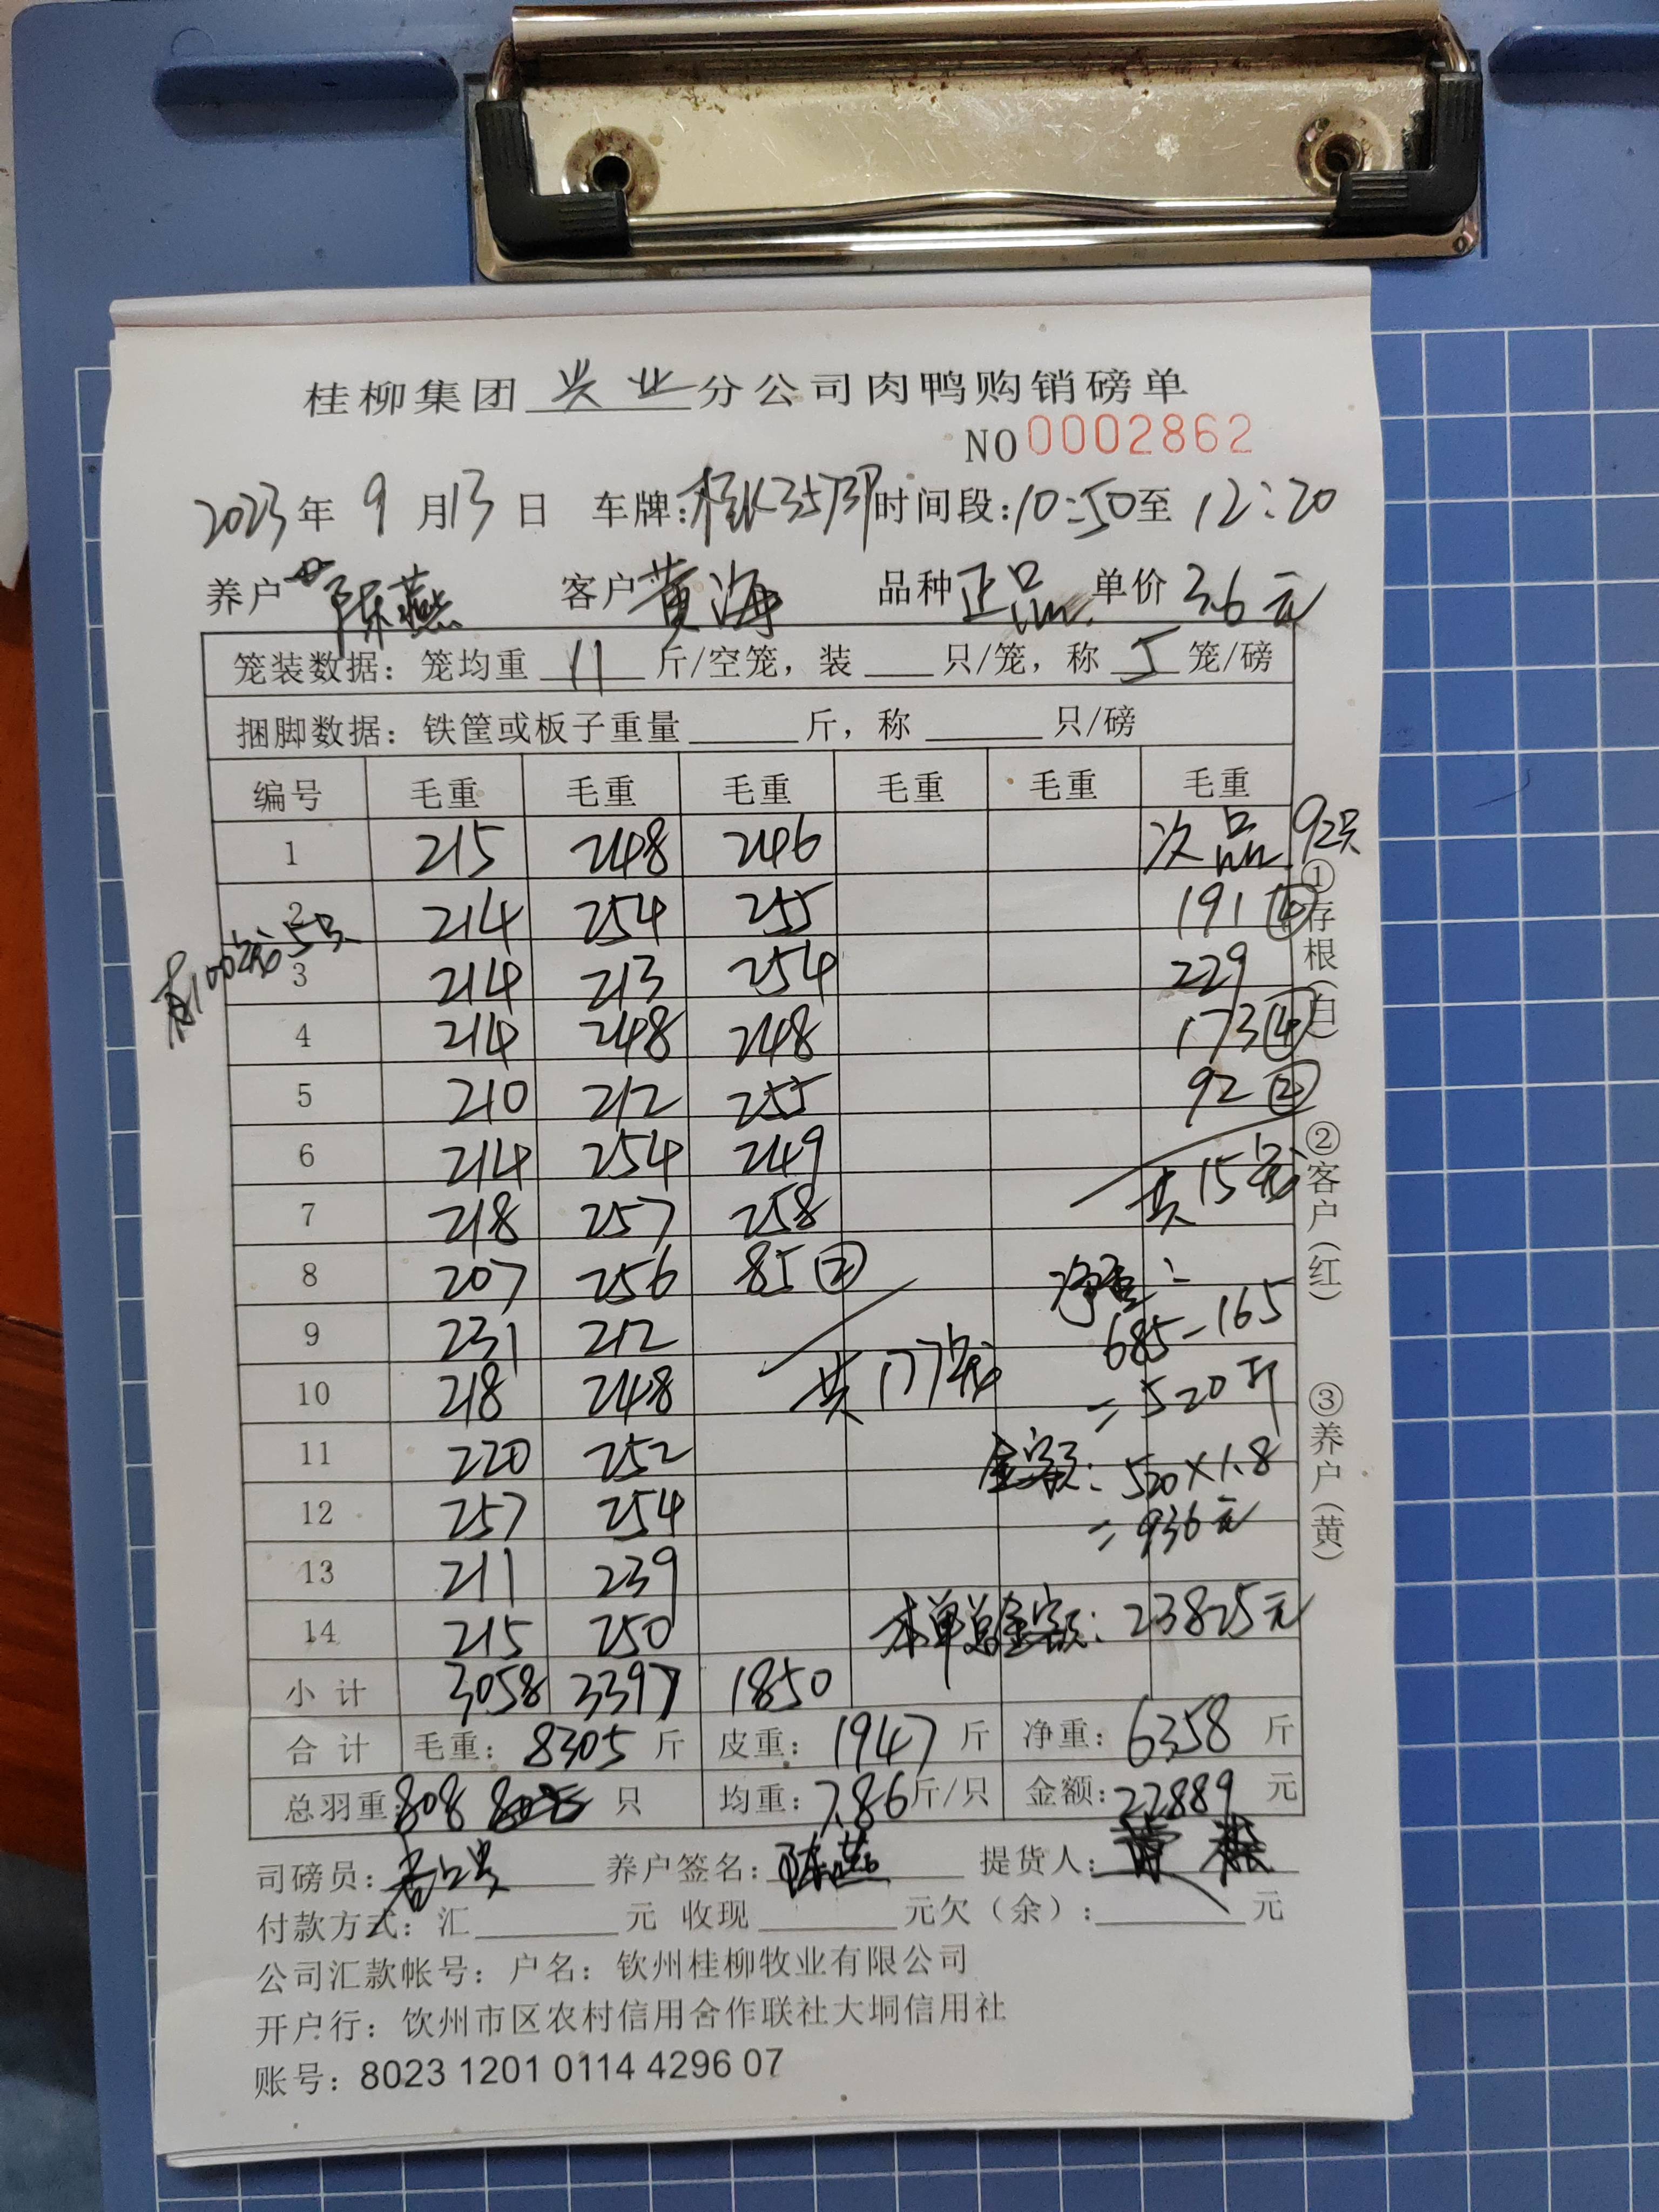 桂柳集团兴业分公司肉鸭购销磅单
NO 0002862
2023年 9 月13 日 车牌: 时间段:10:50至 12:20
养户 陈燕 客户 黄海 品种 正品 单价 3.6元
笼装数据: 笼均重 11 斤/空笼, 装 只/笼, 称 5 笼/磅
捆脚数据: 铁筐或板子重量 斤, 称 只/磅
编号 毛重 毛重 毛重 毛重 毛重 毛重
1 215 248 246 次品 92只
2 214 254 255 191 ④
有100笼5只
3 214 213 254 229
4 214 248 248 173 ④
5 210 212 255 92 ②
6 214 254 249 共15笼
7 218 257 258
8 207 256 85 ② 净重:
9 231 212 685-165
10 218 248 共177笼 =520斤
11 220 252 金额: 520×1.8
12 257 254 =936元
13 211 239
14 215 250 本单总金额: 23825元
小 计 3058 3397 1850
合 计 毛重: 8305 斤 皮重: 1947 斤 净重: 6358 斤
总羽重: 808 只 均重: 7.86 斤/只 金额: 22889 元
司磅员: 养户签名: 陈燕 提货人:
付款方式: 汇 元 收现 元欠(余): 元
公司汇款帐号: 户名: 钦州桂柳牧业有限公司
开户行: 钦州市区农村信用合作联社大垌信用社
账号: 8023 1201 0114 4296 07
①存根(白)
②客户(红)
③养户(黄)